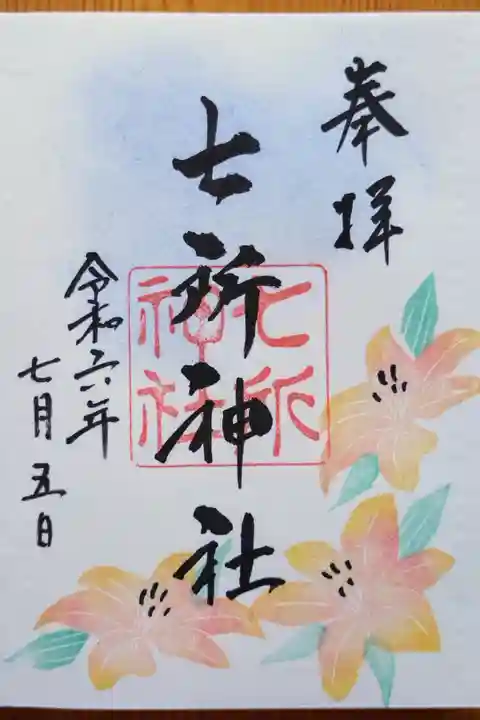 奉拝
七所神社
七所神社
令和六年
七月五日